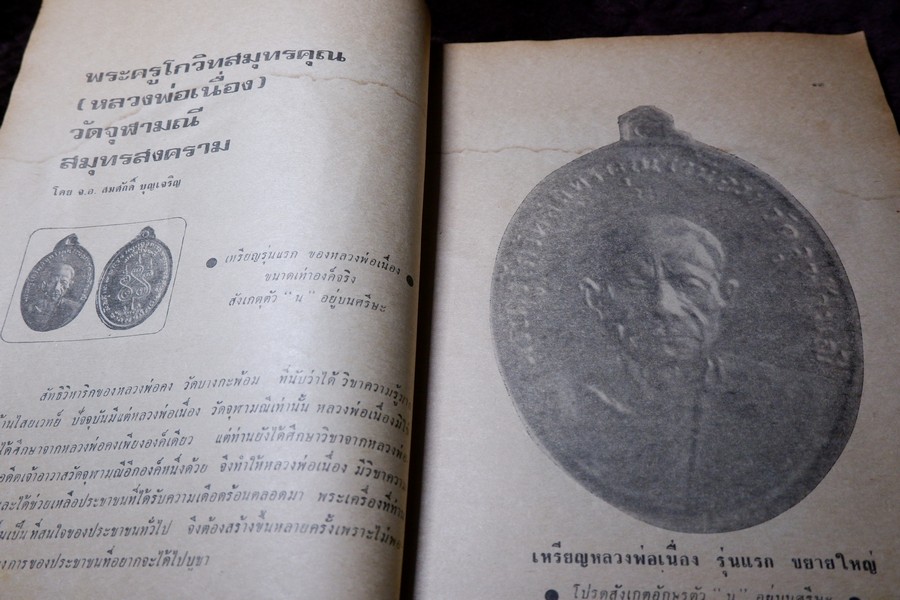 พระครูโกวิทสมุทรคุณ
(หลวงพ่อเนื่อง)
วัดจุฬามณี
สมุทรสงคราม
โดย จ.อ. สมศักดิ์ บุญเจริญ
● เหรียญรุ่นแรก ของหลวงพ่อเนื่อง ●
ขนาดเท่าองค์จริง
สังเกตุตัว "น" อยู่บนศรีษะ
สัทธิวิหาริกของหลวงพ่อคง วัดบางกะพ้อม ที่นับว่าได้วิชาความรู้
ด้านไสยเวทย์ ปัจจุบันมีแต่หลวงพ่อเนื่อง วัดจุฬามณีเท่านั้น หลวงพ่อเนื่องมิ
ได้ศึกษาจากหลวงพ่อคงเพียงองค์เดียว แต่ท่านยังได้ศึกษาวิชาจากหลวงพ่อ
อดีตเจ้าอาวาสวัดจุฬามณีอีกองค์หนึ่งด้วย จึงทำให้หลวงพ่อเนื่อง มีวิชาความ
และได้ช่วยเหลือประชาชนที่ได้รับความเดือดร้อนตลอดมา พระเครื่องที่ท่าน
เป็นที่สนใจของประชาชนทั่วไป จึงต้องสร้างขึ้นหลายครั้งเพราะไม่พอ
ของประชาชนที่อยากจะได้ไปบูชา
เหรียญหลวงพ่อเนื่อง รุ่นแรก ขยายใหญ่
● โปรดสังเกตุอักษรตัว "น" อยู่บนศรีษะ